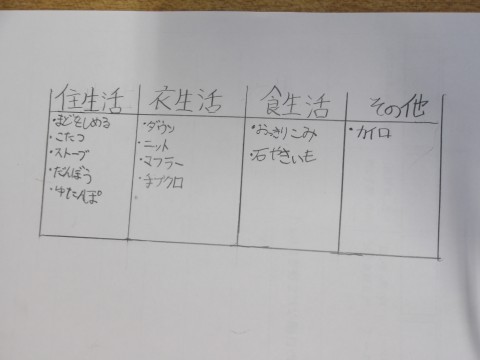 住生活
・まどをしめる
・こたつ
・ストーブ
・だんぼう
・ゆたんぽ
衣生活
・ダウン
・ニット
・マフラー
・手ブクロ
・
食生活
・おっきりこみ
・石やきいも
その他
・カイロ